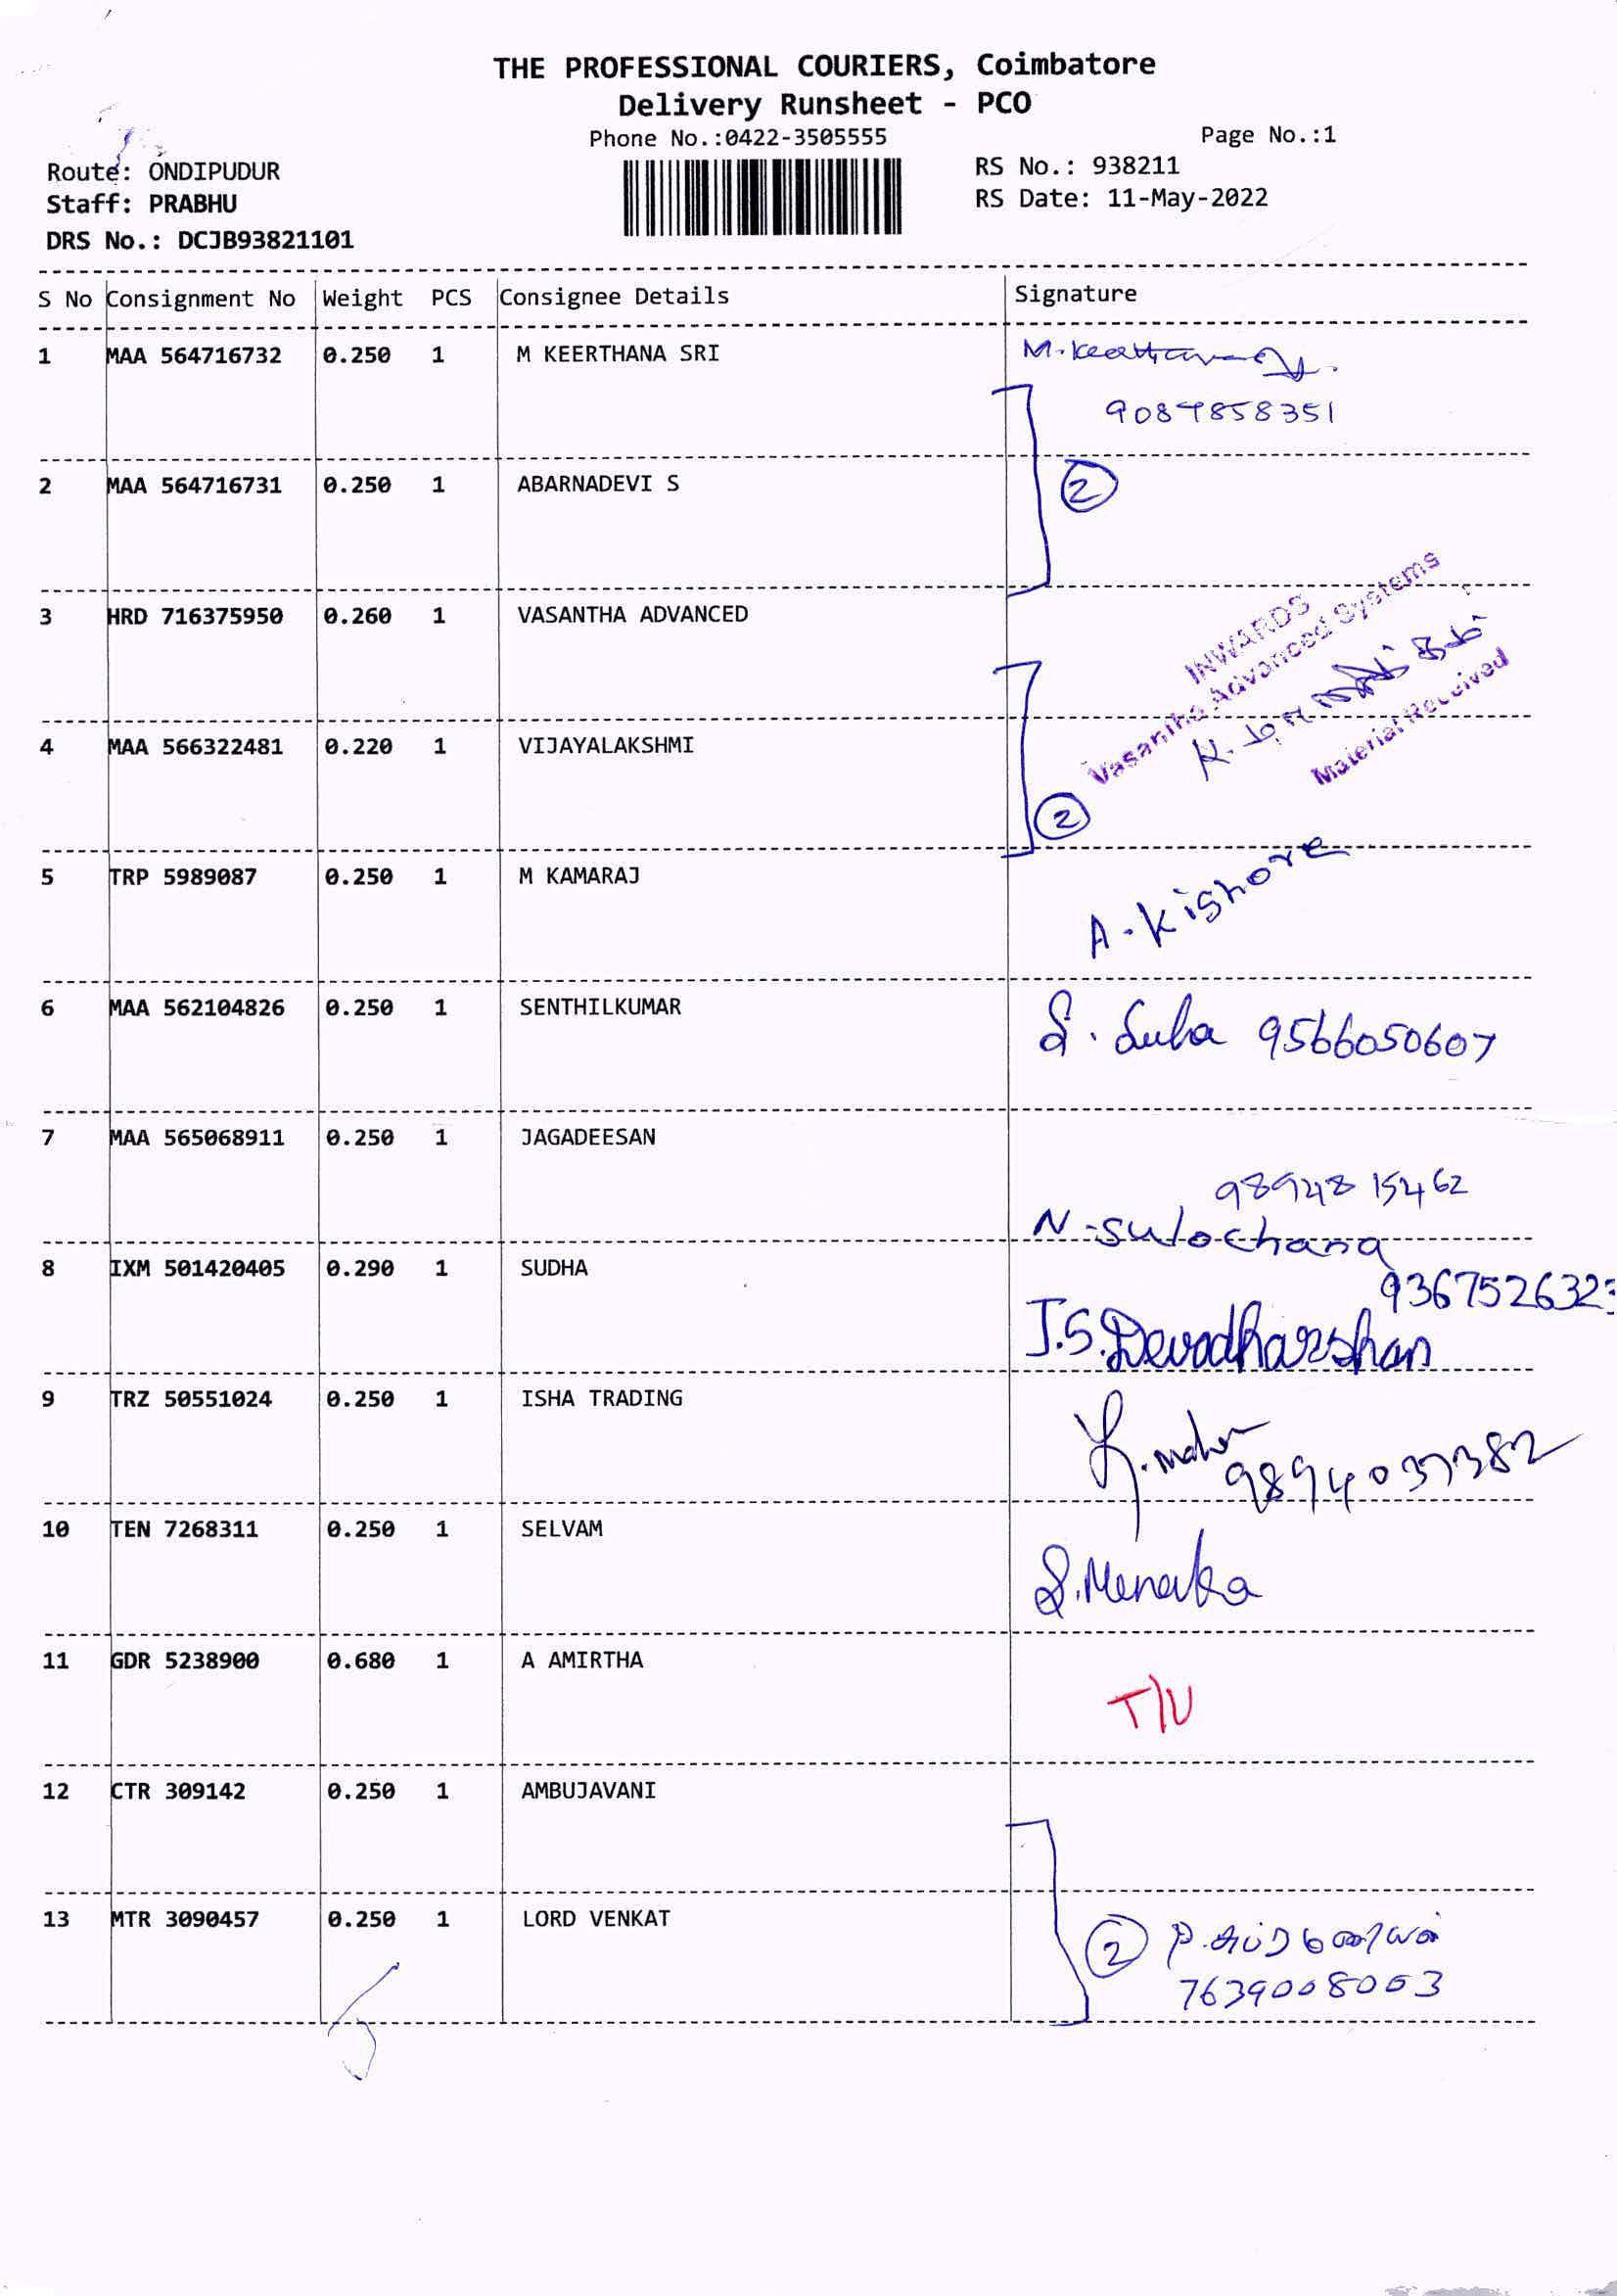 THE PROFESSIONAL COURIERS, Coimbatore
Delivery Runsheet - PCO
Phone No.:0422-3505555
Page No.:1
Route: ONDIPUDUR
RS No.: 938211
Staff: PRABHU
RS Date: 11-May-2022
DRS No.: DCJB93821101
S No Consignment No Weight PCS Consignee Details Signature
1 MAA 564716732 0.250 1 M KEERTHANA SRI
2 MAA 564716731 0.250 1 ABARNADEVI S 2
3 HRD 716375950 0.260 1 VASANTHA ADVANCED
INWARDS
Vasantha Advanced Systems
Material Received
4 MAA 566322481 0.220 1 VIJAYALAKSHMI
2
5 TRP 5989087 0.250 1 M KAMARAJ
A. Kishore
6 MAA 562104826 0.250 1 SENTHILKUMAR
S. Suba 9566050607
7 MAA 565068911 0.250 1 JAGADEESAN
98948 15462
N. Sulochana
8 IXM 501420405 0.290 1 SUDHA
J.S. Devadharshan
9 TRZ 50551024 0.250 1 ISHA TRADING
10 TEN 7268311 0.250 1 SELVAM
S. Menaka
11 GDR 5238900 0.680 1 A AMIRTHA
T/U
12 CTR 309142 0.250 1 AMBUJAVANI
13 MTR 3090457 0.250 1 LORD VENKAT
2
7639008003